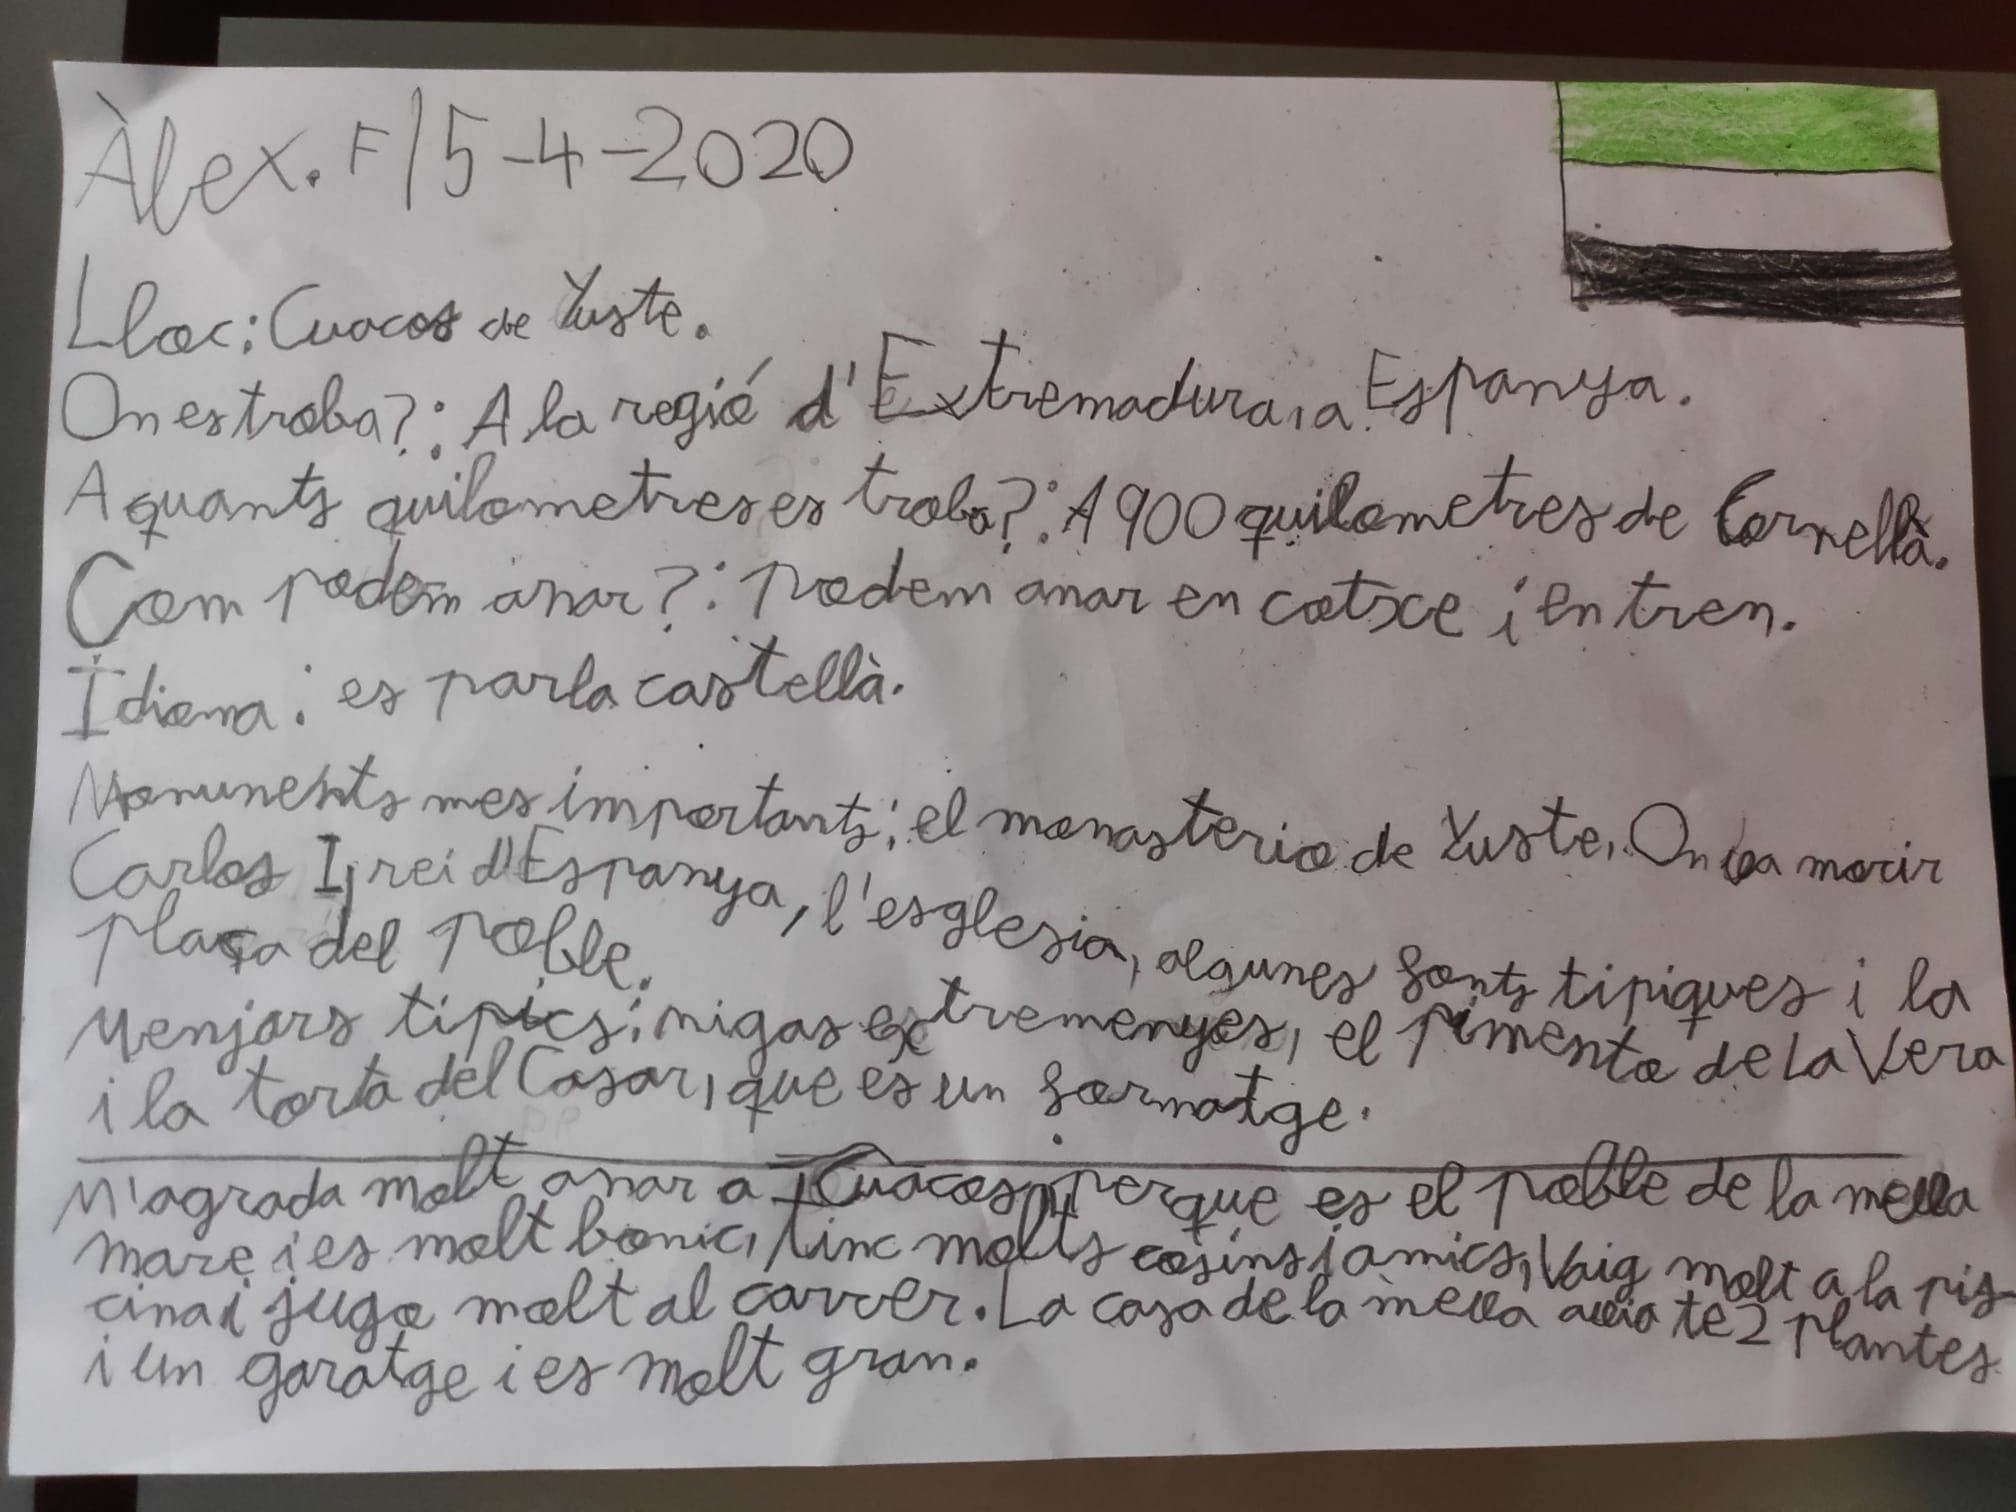 Àlex. F/5-4-2020
Lloc: Cuacos de Yuste.
On es troba?: A la regió d'Extremadura, a Espanya.
A quants quilometres es troba?: A 900 quilometres de Cornellà.
Com podem anar?: Podem anar en cotxe i en tren.
Idioma: es parla castellà.
Monuments mes importants: el monasterio de Yuste, On va morir
Carlos I, rei d'Espanya, l'esglesia, algunes fonts tipiques i la
plaça del poble.
Menjars tipics: migas extremenyes, el pimento de La Vera
i la torta del Casar, que es un formatge.
M'agrada molt anar a Cuacos, perque es el poble de la meva
mare i es molt bonic, tinc molts cosins i amics, Vaig molt a la pis-
cina i jugo molt al carrer. La casa de la meva avia te 2 plantes
i un garatge i es molt gran.